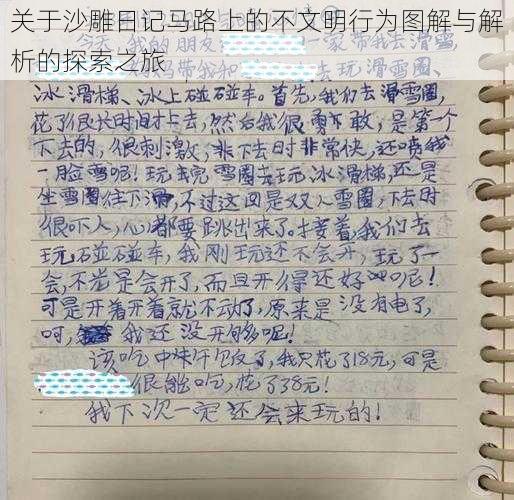 关于沙雕日记马路上的不文明行为图解与解
析的探索之旅
今天,我的朋友 一家带我去滑雪,
妈带我和 去玩滑雪圈、
冰滑梯、冰上碰碰车。首先,我们去滑雪圈,
花了很长时间才上去,然后我很勇敢,是第一个
下去的,很刺激,非下去时非常快,还喷我
一脸雪呢!玩完雪圈去玩冰滑梯,还是
坐雪圈往下滑,不过这回是双人雪圈,下去时
很吓人,心都要跳出来了。接着,我们去
玩碰碰车,我刚玩还不会开,玩了一
会,不光是会开了,而且开得还好呢!
可是开着开着就不动了,原来是没有电了,
呵, 我还没开够呢!
该吃中午饭了,我只花了18元,可是
很能吃,花了38元!
我下次一定还会来玩的!